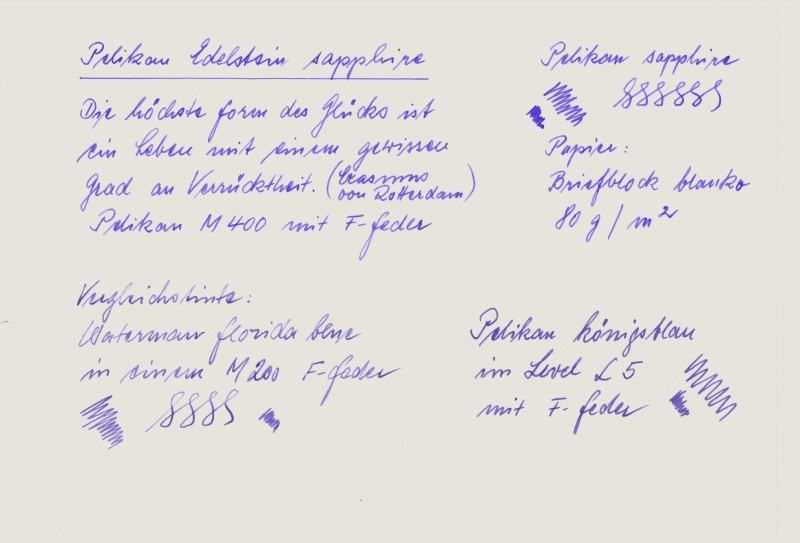 Pelikan Edelstein sapphire
Die höchste form des Glücks ist
ein Leben mit einem gewissen
Grad an Verrücktheit. (Erasmus
von Rotterdam)
Pelikan M 400 mit F-feder
Pelikan sapphire
Papier:
Briefblock blanko
80 g / m²
Vergleichstinte:
Waterman florida blue
in einem M 200 F-feder
Pelikan königsblau
im Level L 5
mit F-feder